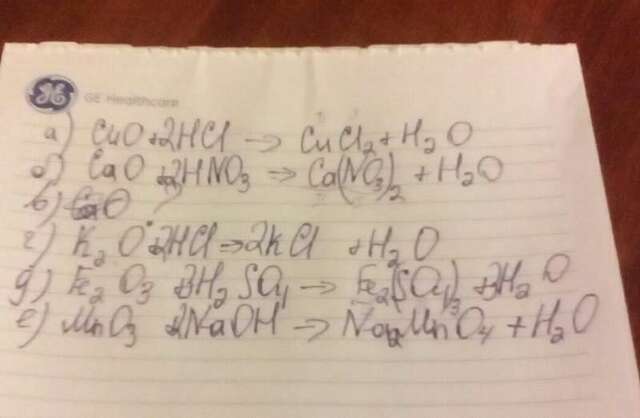 GE Healthcare
а) CuO + 2HCl → CuCl2 + H2O
б) CaO + 2HNO3 → Ca(NO3)2 + H2O
в)
г) K2O + 2HCl → 2KCl + H2O
д) Fe2O3 + 3H2SO4 → Fe2(SO4)3 + 3H2O
е) MnO3 2NaOH → Na2MnO4 + H2O